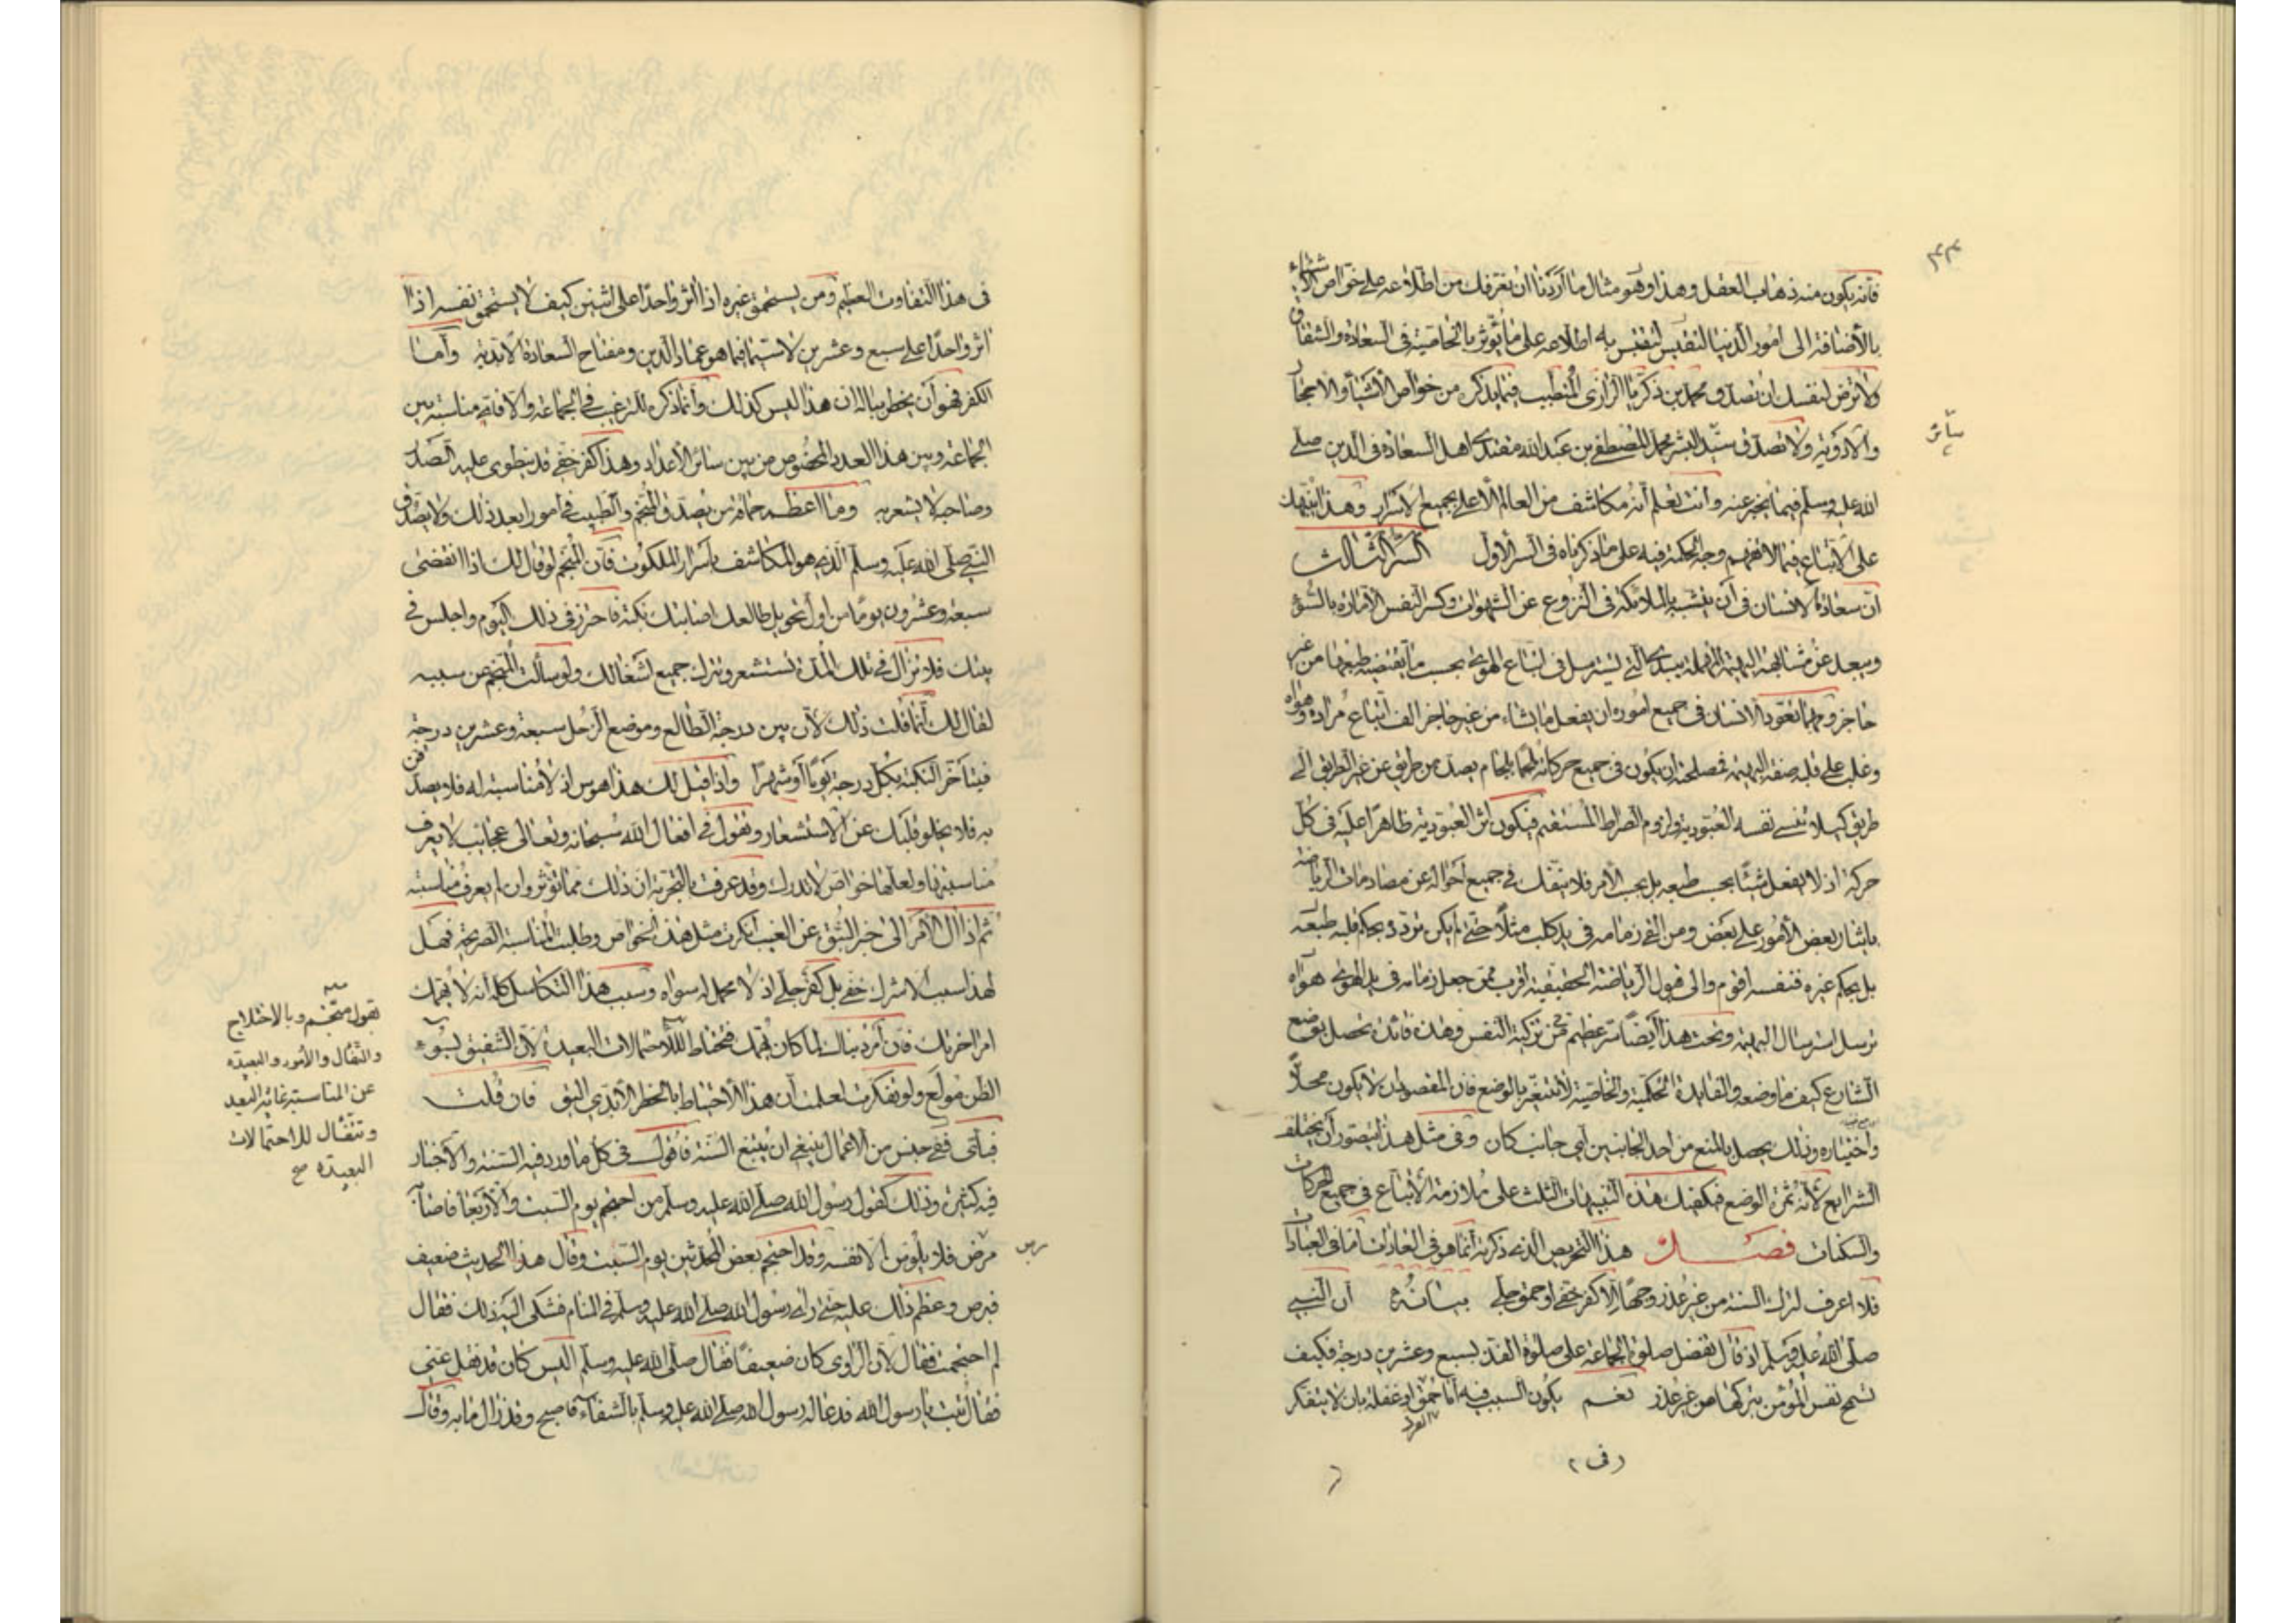 فانه يكون منه ذهاب العقل وهذا وهو مثال ما اردنا ان نعرفك من اطلاعه على خواص الاشياء
بالأضافة الى امور الدنيا لتقتبس به اطلاعه على ما يؤثر بالخاصية فى السعادة والشقاق
ولا ترض لنفسك ان تصدق محمد بن زكريا الرازى المتطبب فيما يذكر من خواص الأشياء والاحجار
والادوية ولا تصدق سيد البشر محمد المصطفى بن عبد الله مقتدى اهل السعادة فى الدين صلى
الله عليه وسلم فيما يخبر عنه وانت تعلم أنه مكاشف من العالم الاعلى بجميع الاسرار وهذا ينبهك
على الاتباع فيما لا تفهم وجه الحكمة فيه على ما ذكرناه فى السر الاول السر الثالث
ان سعادة الانسان فى أن يتشبه بالملائكة فى النزوع عن الشهوات وكسر النفس الامارة بالسوء
ويبعد عن مشابهة البهيمة المهملة سدى التى تسترسل فى اتباع الهوى بحسب ما يقتضيه طبعها من غير
حاجز ومهما تعود الانسان فى جميع امور ان يفعل ما يشاء من غير حاجز الف اتباع مراده وهواه
وغلب على قلبه صفة البهيمة فمصلحته ان يكون فى جميع حركاته ملجما بلجام يصده من طريق عن غير الطريق الى
طريق كيلا تنسى نفسه العبودية ولزوم الصراط المستقيم فيكون اثر العبودية ظاهرا عليه فى كل
حركة اذ لا يفعل شيئا بحسب طبعه بل بحسب الأمر فلا ينفك فى جميع أحواله عن مصادمات الرياضة
بايثار بعض الأمور على بعض ومن القى زمامه فى يد كلب مثلا حتى لم يكن تردده بحكم قلبه طبعه
بل بحكم غيره فنفسه اقوم والى قبول الرياضة الحقيقية اقرب ممن جعل زمامه فى يد الهوى هواه
ترسل استرسال البهيمة وتحت هذا ايضا سر عظيم فى تزكية النفس وهذه فائدة تحصل بوضع
الشارع كيف ما وضعه والفايدة الحكمية والخاصية لا تتغير بالوضع فان المقصود ان لا يكون محلا
واختياره وذلك يحصل بالمنع من احد الجانبين أى جانب كان وفى مثل هذا يتصور أن يختلف
الشرايع لأنه ثمرة الوضع فيكفيك هذه التنبيهات الثلث على ملازمة الأتباع فى جميع الحركات
والسكنات فصل هذا التحريض الذى ذكرته انما هو فى العادات اما فى العبادات
فلا اعرف لترك السنة من غير عذر وجها الا كفر خفى او حمق جلى بيانه ان النبى
صلى الله عليه وسلم اذ قال تفضل صلوة الجماعة على صلوة الفذ بسبع وعشرين درجة فكيف
تسمح نفس المؤمن بتركها من غير عذر نعم يكون السبب فيه اما حمق او غفلة بان لا يتفكر
سائر
فى هذا التفاوت العظيم ومن يستحمق غيره اذا اثر واحدا على اثنين كيف لا يستحمق نفسه اذا
اثر واحدا على سبع وعشرين لا سيما فيما هو عماد الدين ومفتاح السعادة الابدية وأما
الكفر فهو أن يخطر بباله ان هذا ليس كذلك وأنما ذكره للترغيب فى الجماعة والا فاى مناسبة بين
الجماعة وبين هذا العدد المخصوص من بين سائر الأعداد وهذا كفر خفى قد ينطوى عليه الصدر
وصاحبه لا يشعر به وما اعظم حماقة من يصدق المنجم والطبيب فى امور ابعد من ذلك ولا يصدق
النبى صلى الله عليه وسلم الذى هو المكاشف باسرار الملكوت فان المنجم لو قال لك اذا انقضى
سبعة وعشرون يوما من اول تحويل طالعك اصابتك نكبة فاحترز فى ذلك اليوم واجلس فى
بيتك فلا تزال فى تلك المدة تستشعر وتترك جميع اشغالك ولو سألت المنجم عن سببه
لقال لك انما قلت ذلك لأن بين درجة الطالع وموضع الزحل سبعة وعشرين درجة
فيتأخر النكبة بكل درجة يوما أو شهرا واذا قيل لك هذا هوس اذ لا مناسبة له فلا يصدقن
به فلا يخلو قلبك عن الاستشعار وتقول فى افعال الله سبحانه وتعالى عجايب لا يعرف
مناسبتها ولعلها خواص لا تدرك وقد عرفت بالتجربة ان ذلك مما تؤثر وان لم يعرف مناسبته
ثم اذا ال الأمر الى خبر النبوة عن الغيب انكرت مثل هذه الخواص وطلبت المناسبة الصريحة فهل
لهذا سبب الا شرك خفى بل كفر جلى اذ لا محمل له سواه وسبب هذا التكاسل كله انه لا يهمك
امر اخرتك فان أمر دنياك لما كان يهمك فتحتاط للاحتمالات البعيدة لأن الشفيق بسوء
الظن مولع ولو تفكرت لعلمت أن هذا الأحتياط بالخطر الأبدى اليق فان قلت
فباى جنس من الأعمال ينبغى ان يتبع السنة فاقول فى كل ما ورد فيه السنة والأخبار
فيه كثيرة وذلك كقول رسول الله صلى الله عليه وسلم من احتجم يوم السبت والأربعا فاصابه
مرض فلا يلومن الا نفسه وقد احتجم بعض المحدثين يوم السبت وقال هذا الحديث ضعيف
فبرص وعظم ذلك عليه حتى راى رسول الله صلى الله عليه وسلم فى المنام فشكى اليه ذلك فقال
لم احتجمت فقال لأن الراوى كان ضعيفا فقال صلى الله عليه وسلم اليس كان قد نقل عنى
فقال تبت يا رسول الله فدعا له رسول الله صلى الله عليه وسلم بالشفاء فاصبح وقد زال ما به وقال
بقول منجم وبالاختلاج
والفال والأمور البعيدة
عن المناسبة غاية البعد
وتنقاد للاحتمالات
البعيدة صح